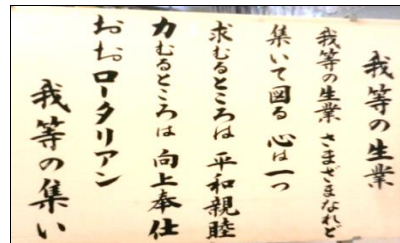 我等の生業
我等の生業 さまざまなれど
集いて図る 心は一つ
求むるところは 平和親睦
力むるところは 向上奉仕
おおロータリアン
我等の集い